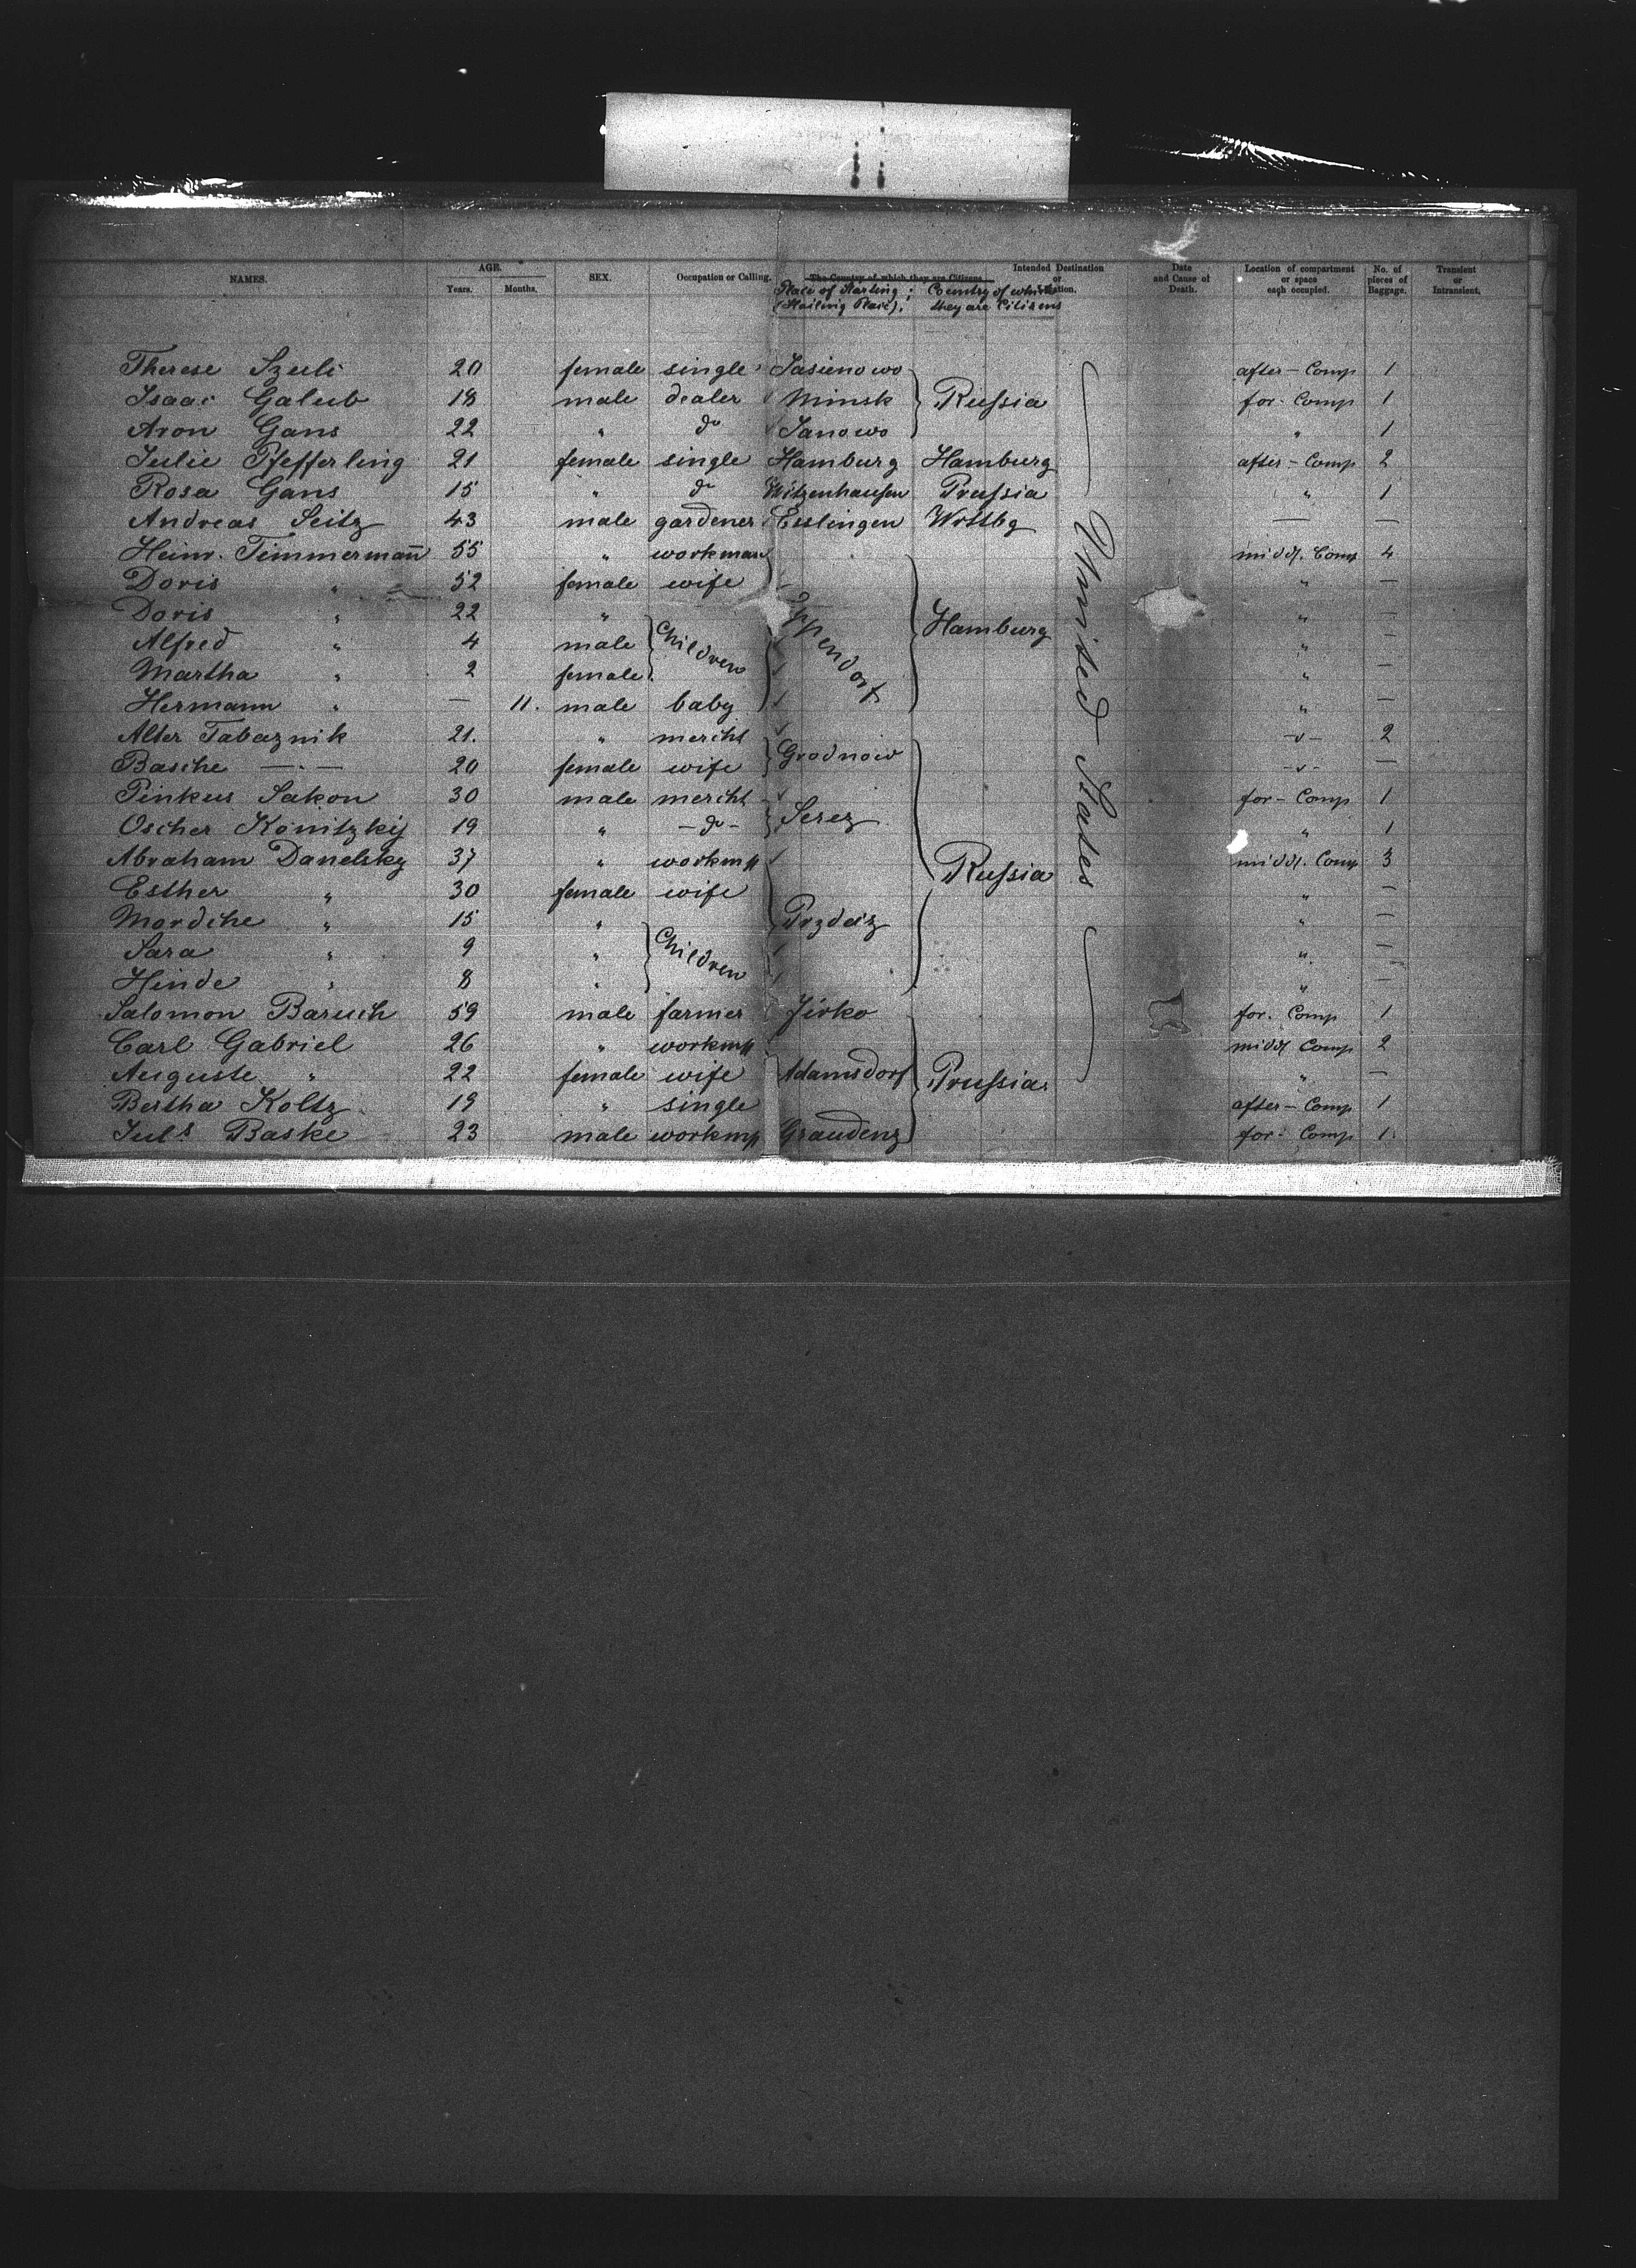 NAMES. AGE. Years. Months. SEX. Occupation or Calling. The Country of which they are Citizens Intended Destination or Location. Date and Cause of Death. Location of compartment or space each occupied. No. of pieces of Baggage. Transient or Intransient.
Place of Starting; (Hailing Place). Country of which they are Citizens
Therese Szuli 20 female single Jasienowo after-Comp 1
Isaac Galub 18 male dealer Minsk Russia for-Comp 1
Aron Gans 22 " do Janowo " 1
Julie Pfefferling 21 female single Hamburg Hamburg after-Comp 2
Rosa Gans 15 " do Witzenhausen Prussia " 1
Andreas Seitz 43 male gardener Esslingen Wrttbg — —
Heinr. Timmermañ 55 " workman middl. Comp 4
Doris " 52 female wife " —
Doris " 22 " Eppendorf Hamburg " —
Alfred " 4 male Children " —
Martha " 2 female " —
Hermann " — 11. male baby " —
Alter Tabaznik 21. " mercht -"- 2
Basche —"— 20 female wife Grodnow -"- —
Pinkus Sakon 30 male mercht for-Comp 1
Oscher Könitzkij 19 " -do- Serez " 1
Abraham Danelsky 37 " workmn Russia middl. Comp 3
Esther " 30 female wife " —
Mordche " 15 " " —
Sara " 9 " Children " —
Hinde " 8 " " —
Salomon Baruch 59 male farmer Jirko for. Comp 1
Carl Gabriel 26 " workmn middl Comp 2
Auguste " 22 female wife Adamsdorf Prussia. " —
Bertha Koltz 19 " single after-Comp 1
Juls Baske 23 male workmn Graudenz for. Comp 1
United States